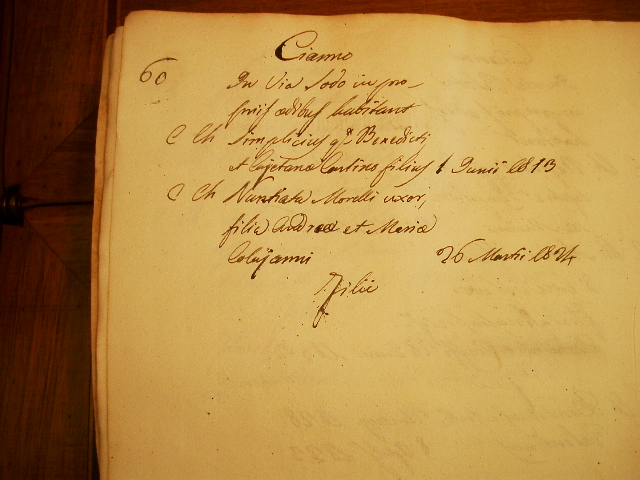 Cianno
60 In Via Sodo in pro-
prijs ædibus habitant
C Ch Simplicius q.m Benedicti
et Cajetanæ Contino filius 1 Junii 1813
C Ch Nunthata Morelli uxor,
filia Andreæ et Mariæ
Colajanni 26 Martii 1824
Filii